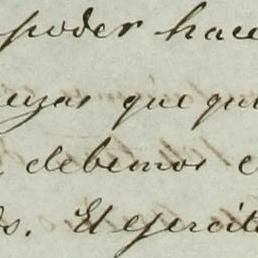 poder hace
que qui
debemos e
El ejercito